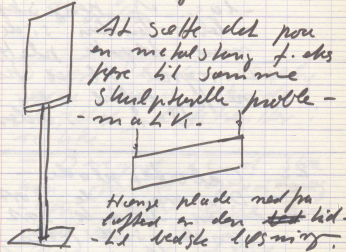 At sætte det på
en metalstang f. eks
fører til samme
skulpturelle proble-
-matik.
Hænge plade ned fra
loftet er den hid-
-til bedste løsning.